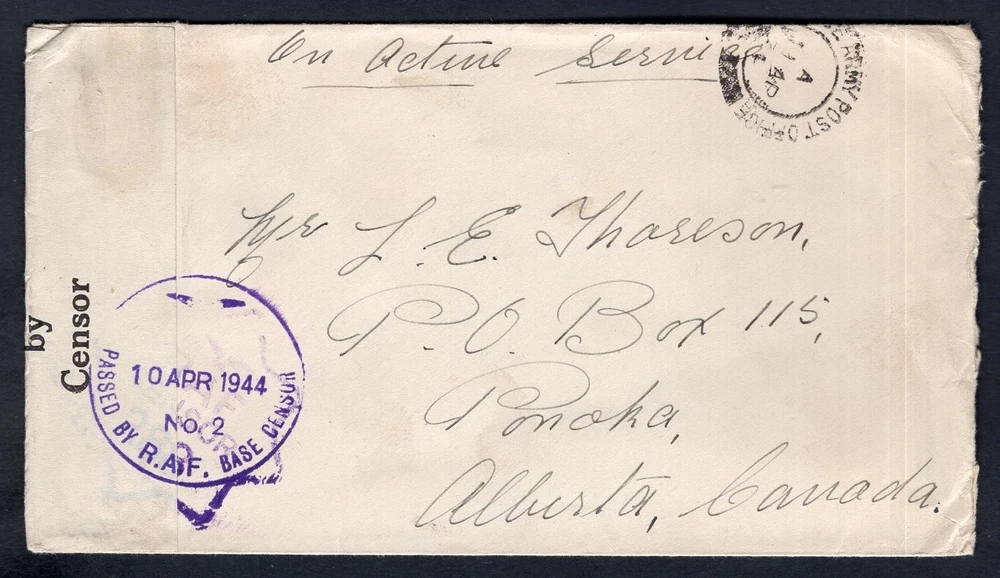 On Active Service
ARMY POST OFFICE
A
AP
Mr L. E. Thoreson,
P.O. Box 115,
Ponoka,
Alberta, Canada.
by
Censor
10 APR 1944
No. 2
PASSED BY R.A.F. BASE CENSOR